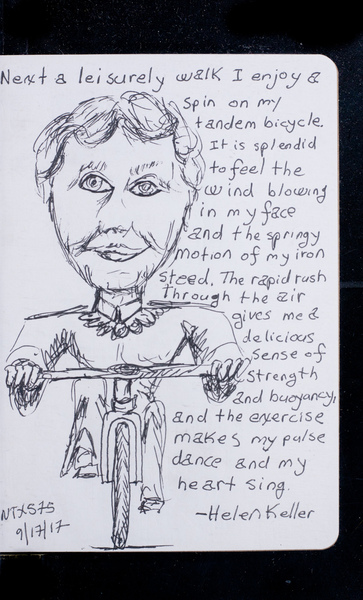 Next a leisurely walk I enjoy a
spin on my
tandem bicycle.
It is splendid
to feel the
wind blowing
in my face
and the springy
motion of my iron
steed. The rapid rush
through the air
gives me a
delicious
sense of
strength
and buoyancy,
and the exercise
makes my pulse
dance and my
heart sing.
-Helen Keller
NTXS75
9/17/17